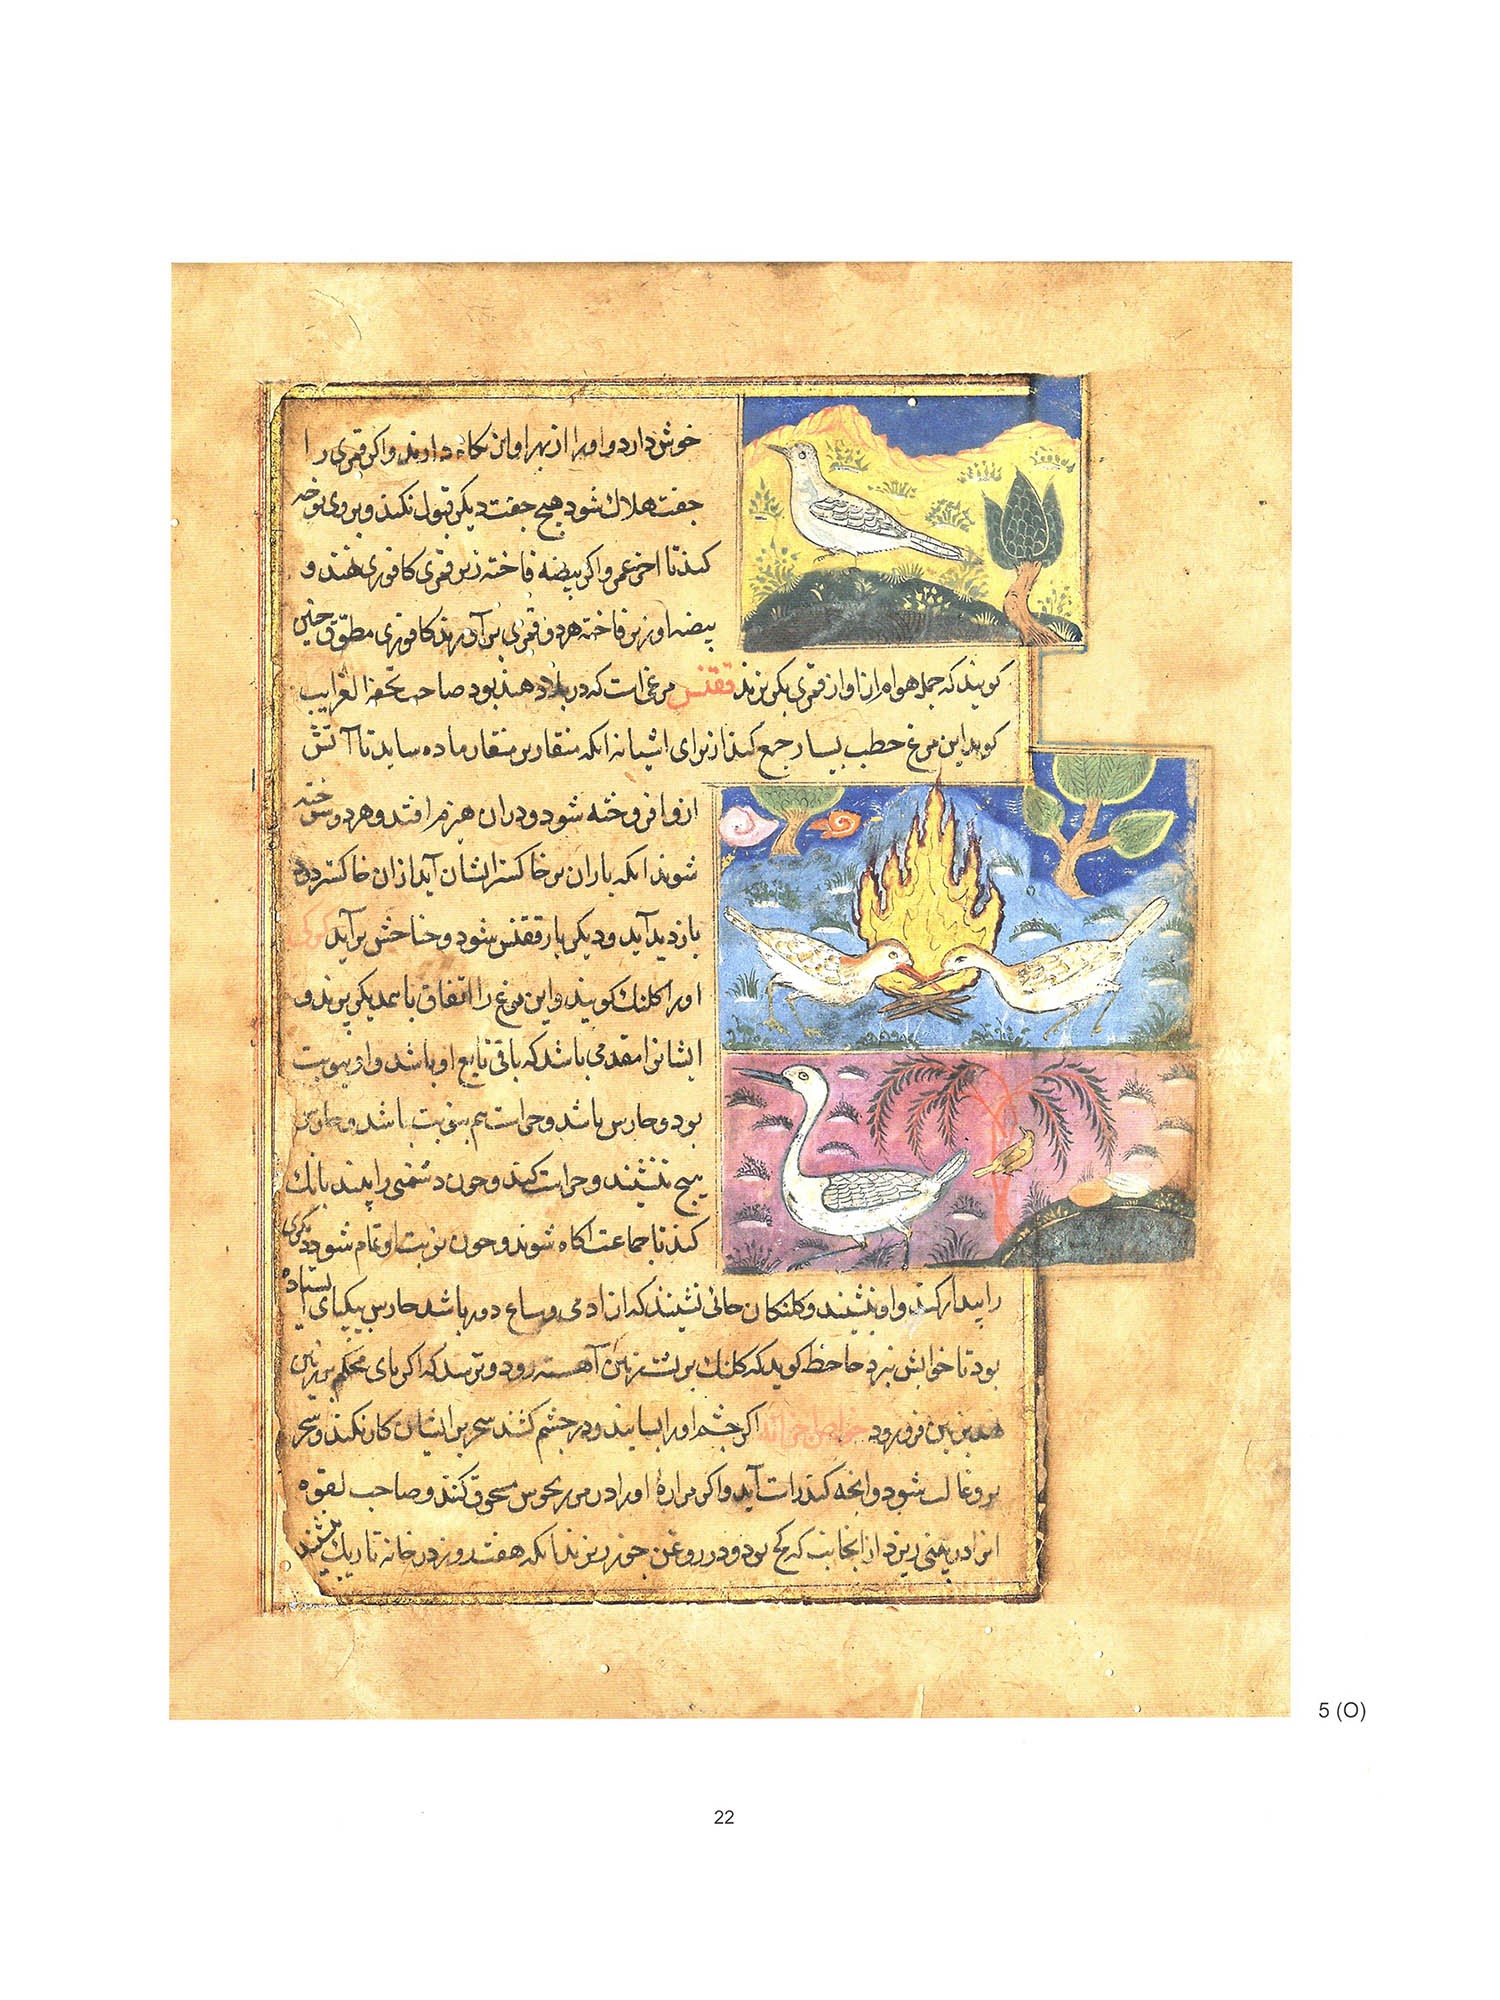 خوش دارد و او را از بهر اواز نکاه دارند و اکر قمری را
جفت هلاک شود هیچ جفت دیکر قبول نکند و بروی نوحه
کند تا اخر عمر و اکر بیضه فاخته زیر قمری کافوری نهند و
بیضه او زیر فاخته هر دو قمری برآورند کافوری مطوق چنین
کویند که جمله هوام از اواز قمری بکریزند ققنس مرغی است که در بلاد هند بود صاحب تحفة الغرایب
کوید این مرغ حطب بسیار جمع کند از برای اشیانه انکه منقار بر منقار ماده ساید تا آتش
ازو افروخته شود و در ان هیزم افتد و هر دو سوخته
شوند انکه باران بر خاکستر ایشان آید از ان خاکستر دو
باز دید آید و دیکر بار ققنس شود و جناحش برآید کرکی
او را کلنک کویند و این مرغ را اتفاق با همدیکر پرند و
ایشانرا مقدمی باشد که باقی تابع او باشد و او بنوبت
بود و حارس باشد و حراست هم بنوبت باشد و حارس
هیچ ننشیند و حراست کند و جون دشمنی را بیند بانک
کند تا جماعت اکاه شوند و جون نوبت او تمام شود دیکری
را بیدار کند و او بنشیند و کلنکان جائی نشینند که از ادمی و سباع دور باشد حارس بیکپای ایستاده
بود تا خوابش نبرد جاحظ کوید که کلنک بر پشت زمین آهسته رود و ترسد که اکر پای محکم بر زمین
نهد بزمین فرو رود خواص اجزائه اکر جشم او را بسایند و در جشم کشند سحر بر ایشان کار نکند و سحر
برو غالب شود و انجه کند راست آید و اکر مراره او را در مرزنجوش مسحوق کنند و صاحب لقوه
انرا در بینی ریزد از انجانب که کج بود و در روغن جوز ریزند انکه هفت روز در خانه تاریک بنشیند
5 (O)
22